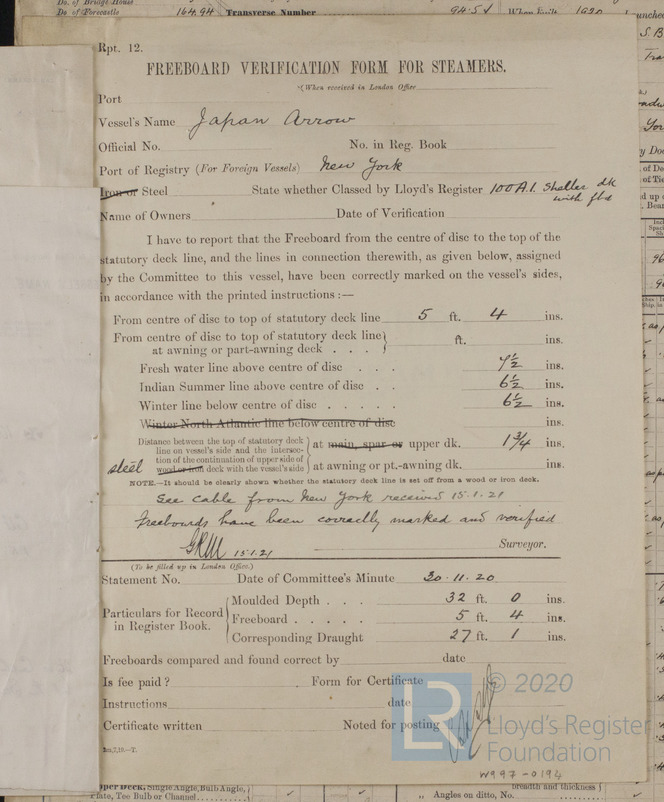 Do. of Bridge House
Do of Forecastle 164.94 Transverse Number 94.51 When Built 1920
Rpt. 12.
FREEBOARD VERIFICATION FORM FOR STEAMERS.
(When received in London Office
Port
Vessel's Name Japan Arrow
Official No. No. in Reg. Book
Port of Registry (For Foreign Vessels) New York
Iron or Steel State whether Classed by Lloyd's Register 100A1. Shelter dk
with fbd
Name of Owners Date of Verification
I have to report that the Freeboard from the centre of disc to the top of the
statutory deck line, and the lines in connection therewith, as given below, assigned
by the Committee to this vessel, have been correctly marked on the vessel's sides,
in accordance with the printed instructions :—
From centre of disc to top of statutory deck line 5 ft. 4 ins.
From centre of disc to top of statutory deck line
at awning or part-awning deck . . . ft. ins.
Fresh water line above centre of disc . . . 7½ ins.
Indian Summer line above centre of disc . . 6½ ins.
Winter line below centre of disc . . . . . 6½ ins.
Winter North Atlantic line below centre of disc ins.
Distance between the top of statutory deck
line on vessel's side and the intersec-
tion of the continuation of upper side of
wood or iron deck with the vessel's side
steel
at main, spar or upper dk. 1¾ ins.
at awning or pt.-awning dk. ins.
NOTE.—It should be clearly shewn whether the statutory deck line is set off from a wood or iron deck.
See cable from New York received 15.1.21
Freeboards have been correctly marked and verified
15.1.21 Surveyor.
(To be filled up in London Office.)
Statement No. Date of Committee's Minute 30.11.20
Particulars for Record
in Register Book.
Moulded Depth . . . 32 ft. 0 ins.
Freeboard . . . . . 5 ft. 4 ins.
Corresponding Draught 27 ft. 1 ins.
Freeboards compared and found correct by date
Is fee paid? Form for Certificate
Instructions date
Certificate written Noted for posting
2m,7,19.—T.
LR
© 2020
Lloyd's Register
Foundation
W997-0194
pper Deck, Single Angle, Bulb Angle,
Plate, Tee Bulb or Channel
breadth and thickness
„ Angles on ditto, No.